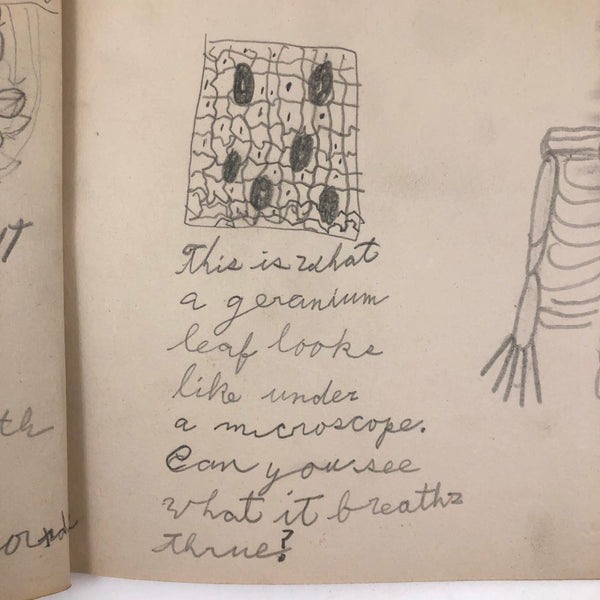 This is what
a geranium
leaf looks
like under
a microscope.
Can you see
what it breathz
thrue?
th